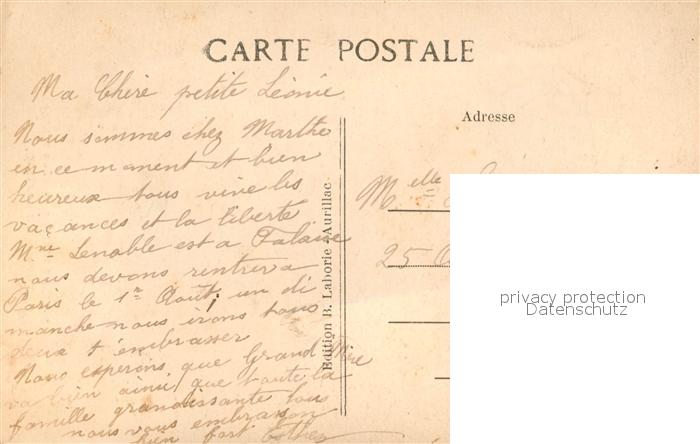 CARTE POSTALE
Ma Chère petite Léonie
Nous sommes chez Marthe
en ce moment et bien
heureux tous vive les
vacances et la liberté
Mme Lenoble est a Falaise
nous devons rentrer a
Paris le 1er Août, un di
manche nous irons tous
deux t'embrasser
Nous esperons que Grand Mère
va bien ainsi que toute la
famille grandissante tous
nous vous embrassons
bien fort Esther
Edition B. Laborie - Aurillac
Adresse
Melle
25
privacy protection
Datenschutz